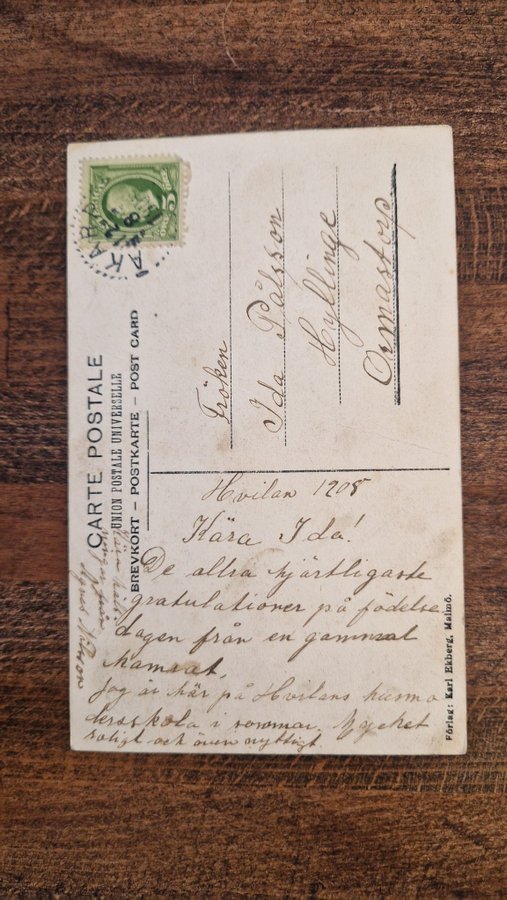 CARTE POSTALE
UNION POSTALE UNIVERSELLE
BREVKORT – POSTKARTE – POST CARD
Fröken
Ida Pålsson
Hyllinge
Ormastorp.
Hvilan 1208
Kära Ida!
De allra hjärtligaste
gratulationer på födelse
dagen från en gammal
kamrat.
Jag är här på Hvilans husmo
derskola i sommar. Mycket
roligt och även nyttigt.
Förlag: Karl Ekberg, Malmö.
5
KÄR